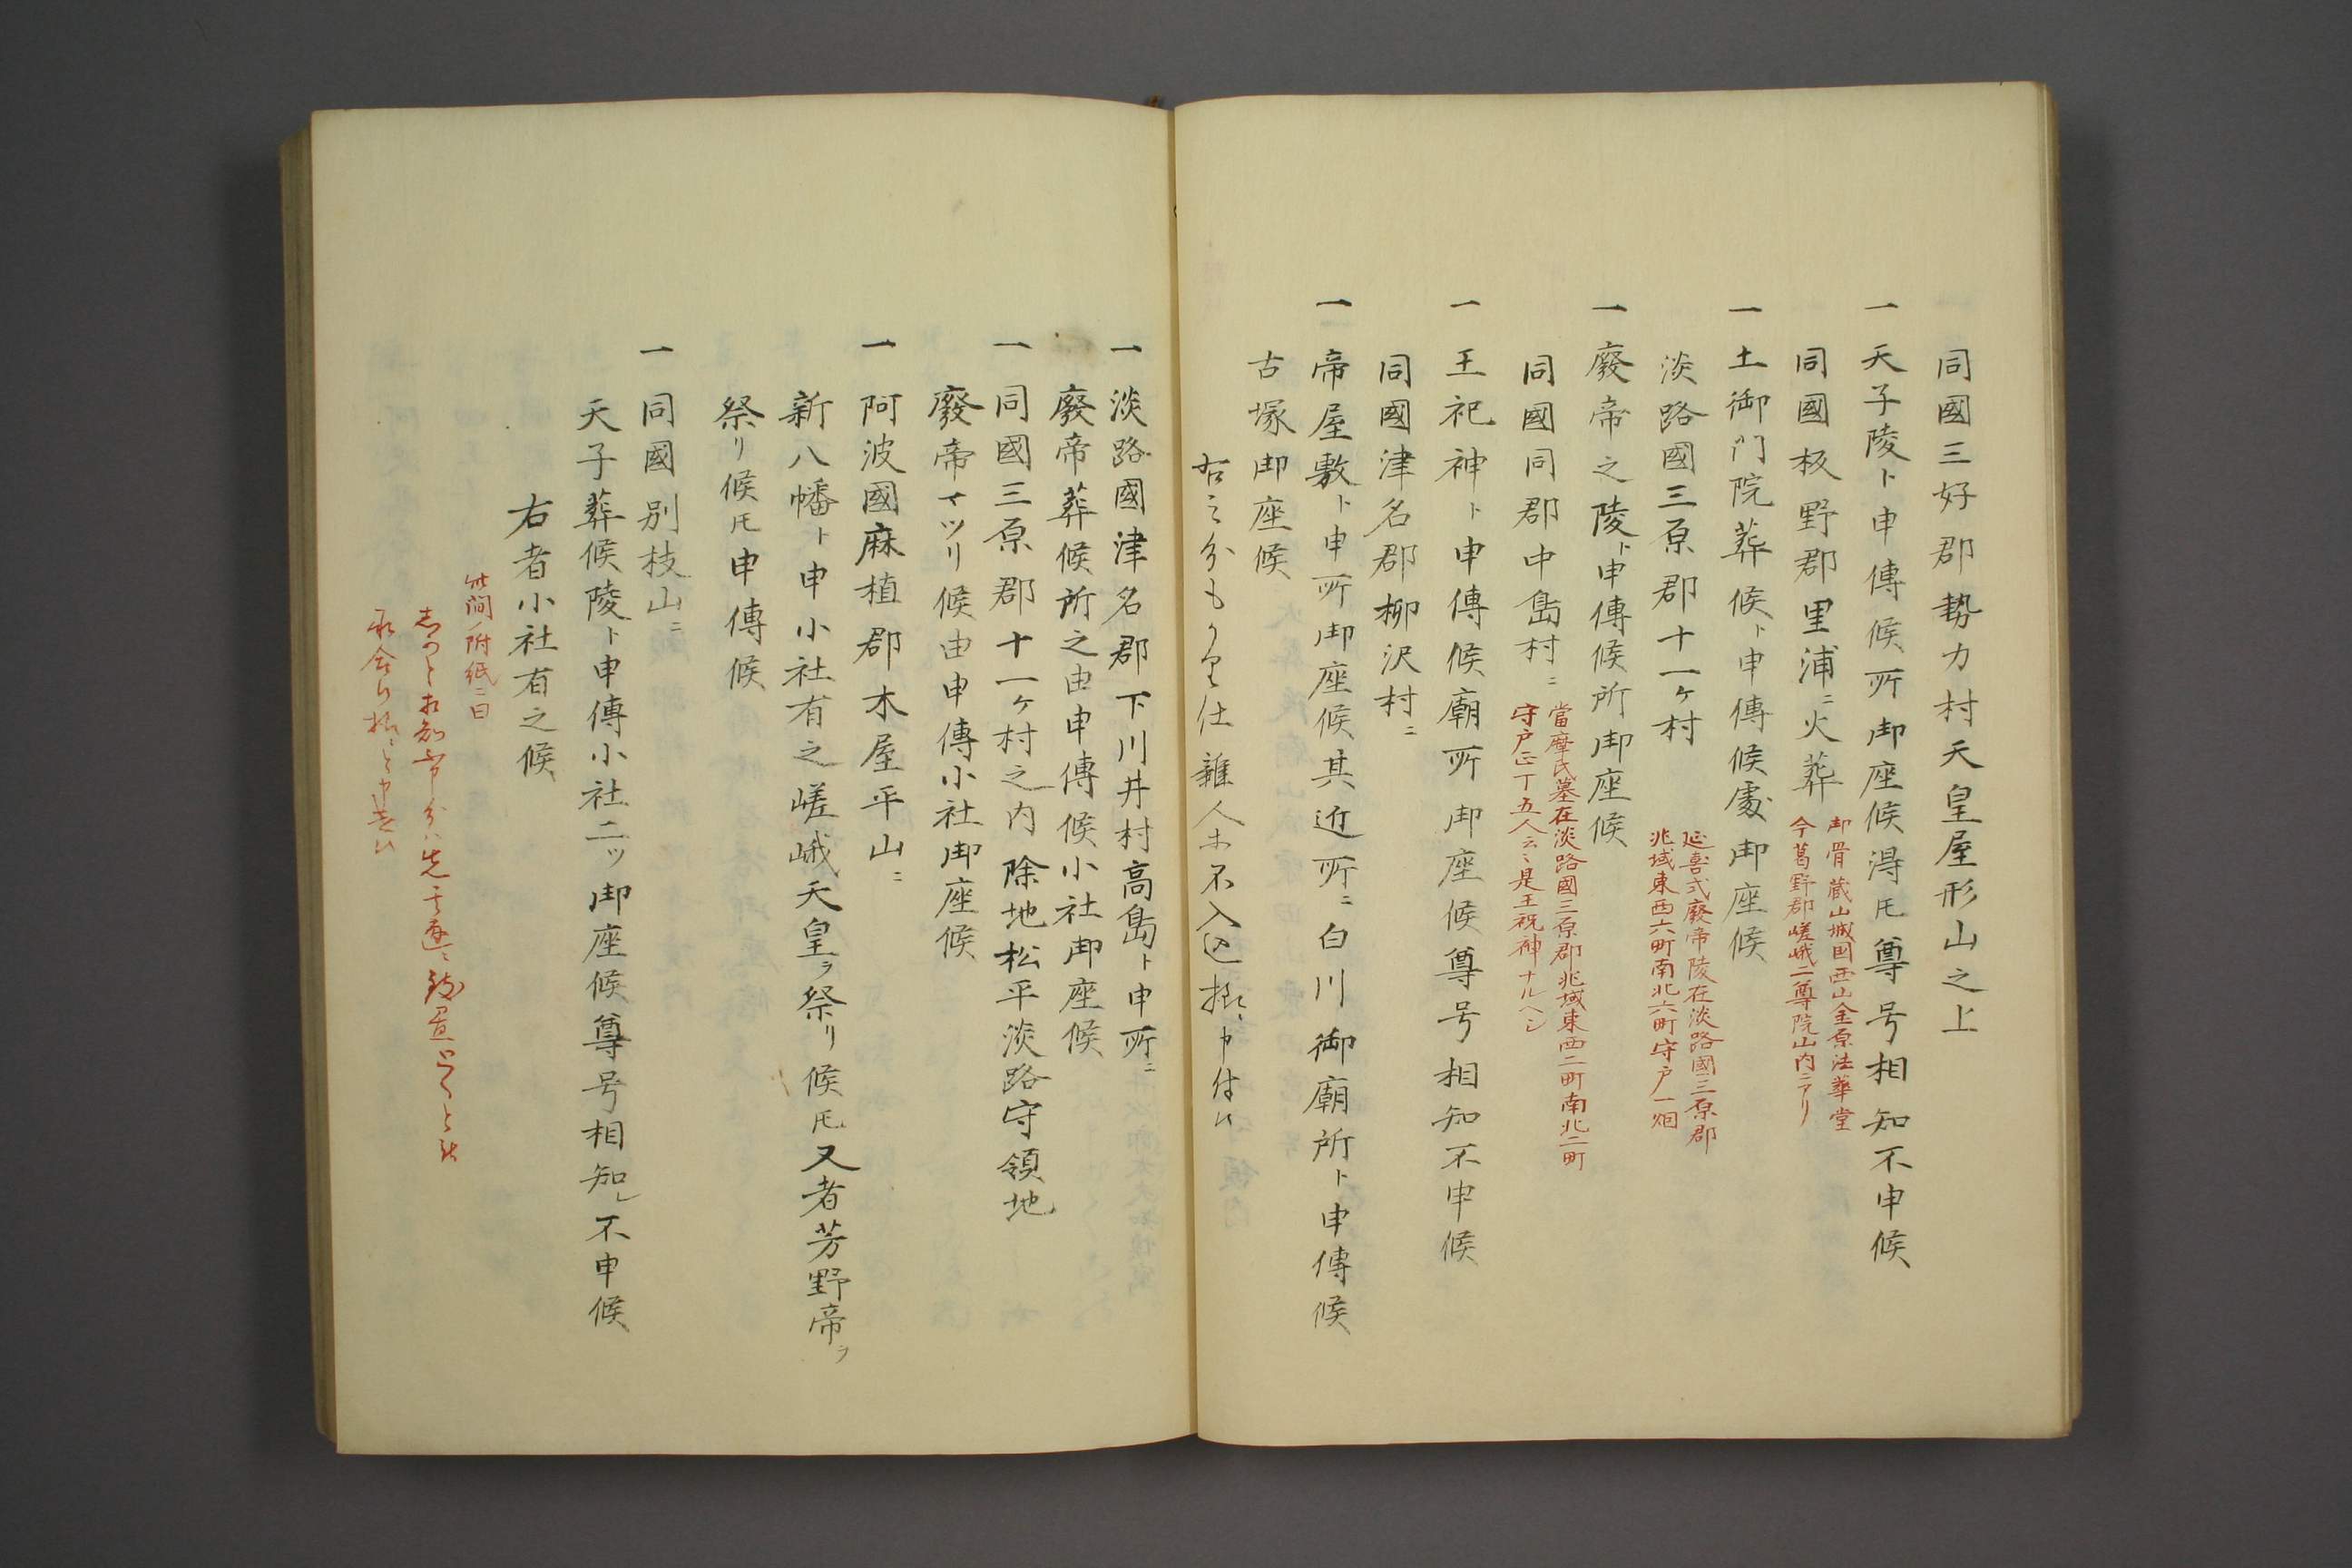 同國三好郡勢力村天皇屋形山之上
一天子陵ト申傳候所御座候得𪜈尊号相知不申候
同國板野郡里浦ニ火葬
御骨蔵山城国西山金原法華堂
今葛野郡嵯峨二尊院山内ニアリ
一土御門院葬候ト申傳候處御座候
淡路國三原郡十一ヶ村
延喜式廢帝陵在淡路國三原郡
兆域東西六町南北六町守戸一烟
一廢帝之陵ト申傳候所御座候
同國同郡中島村ニ
當摩氏墓在淡路國三原郡兆域東西二町南北二町
守戸正丁五人云々是王祝神ナルヘシ
一王祀神ト申傳候廟所御座候尊号相知不申候
同國津名郡柳沢村ニ
一帝屋敷ト申所御座候其近所ニ白川御廟所ト申傳候
古塚御座候
右之分も仕雜人不入込様ニ申付候
一淡路國津名郡下川井村高島ト申所ニ
廢帝葬候所之由申傳候小社御座候
一同國三原郡十一ヶ村之内除地松平淡路守領地
廢帝マツリ候由申傳小社御座候
一阿波國麻植郡木屋平山ニ
新八幡ト申小社有之嵯峨天皇ヲ祭リ候𪜈又者芳野帝ヲ
祭リ候𪜈申傳候
一同國別枝山ニ
天子葬候陵ト申傳小社二ツ御座候尊号相知レ不申候
右者小社有之候
此間ノ附紙ニ曰